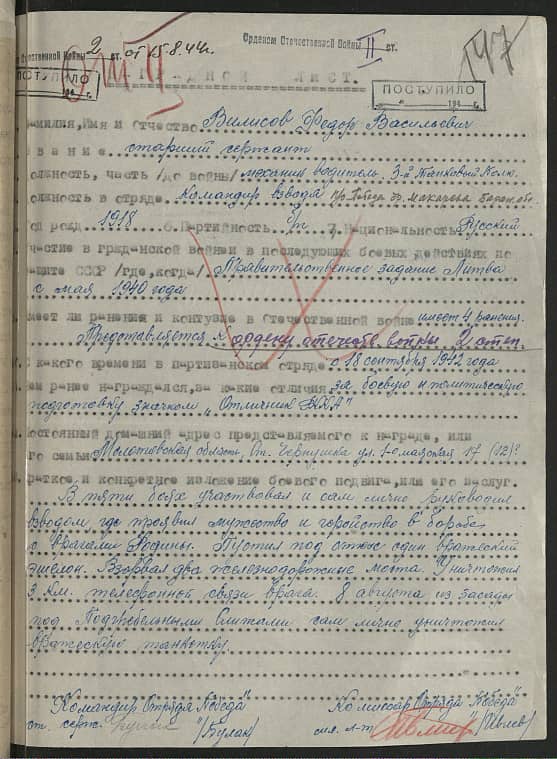 Орденом Отечественной Войны II ст.
Отечественной Войны 2 ст. от 15.8.44г.
147
ПОСТУПИЛО
194 г.
НАГРАДНОЙ ЛИСТ.
ПОСТУПИЛО
194 г.
амилия,Имя и Отчество Вилисов Федор Васильевич
вание старший сержант
олжность, часть /до войны/ механик водитель. 3-й Танковый
олжность в отряде. Командир взвода п/о Победа бр. Макаева
од рожд 1918 6.Партийность б/п 7.Национальность Русский
частие в гржданской войнеи в последующих боевых действиях по
ащите СССР /где,когда/ Правительственное задание Литва
с мая 1940 года
меет ли ранения и контузие в Отечественной войне имеет 4 ранения.
Представляется к ордену отечеств. войны 2 степ.
с какого времени в партизанском отряде с 18 сентября 1942 года
ем ранее награждался,за какие отличия за боевую и политическую
подготовку значком „Отличник РККА"
остоянный домашний адрес представляемого к награде, или
го семьи Молотовская область, ст. Чернушка ул. 1-о маяская 17 (12)?
раткое и конкретное изложение боевого подвига,или его заслуг.
В пяти боях участвовал и сам лично руководил
взводом, где проявил мужество и геройство в борьбе
с врагами Родины. Пустил под откос один вражеский
эшелон. Взорвал два железнодорожные моста. Уничтожил
3 км. телефонной связи врага. 8 августа из засады
под сам лично уничтожил
вражескую танкетку.
Командир Отряда „Победа" Комиссар Отряда „Победа"
ст. серж. /Булак/ мл. л-т /Ивлев/